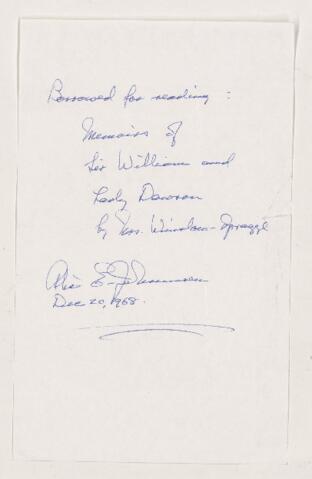 Borrowed for reading:
Memoirs of
Sir William and
Lady Dawson
by Mrs. Winslow-Spragge
Alice E. Johannsen
Dec 20, 1968.